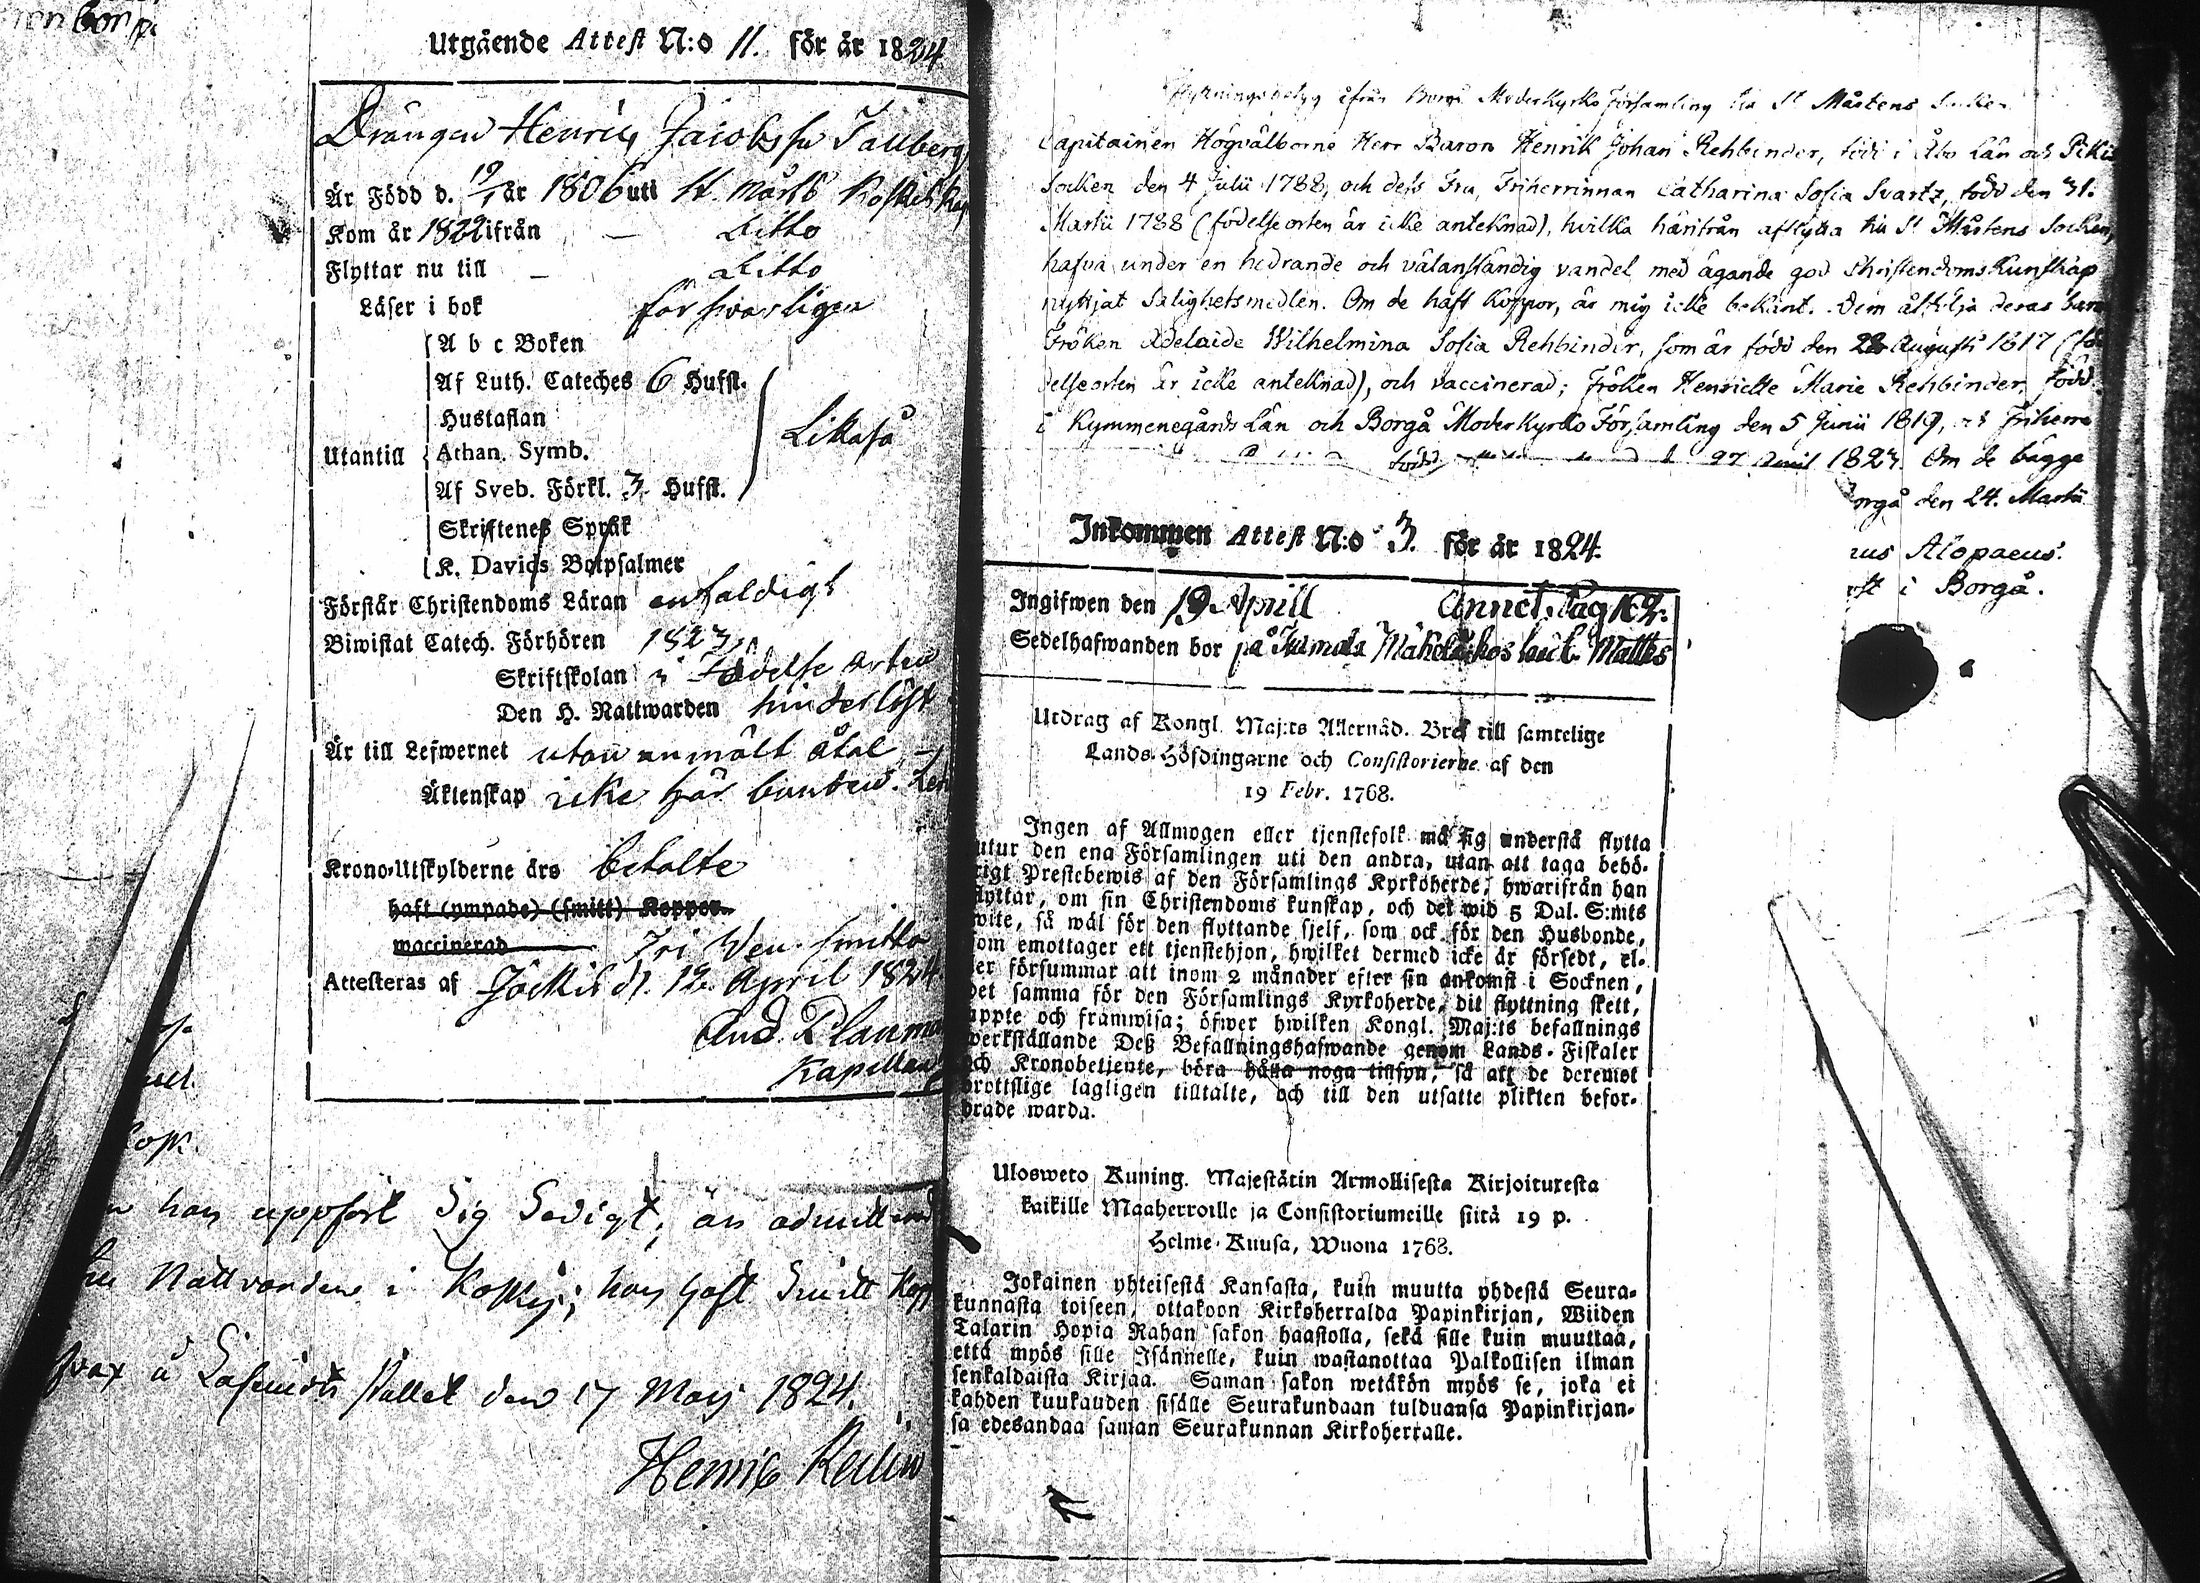 Utgående Attest N:o 11. för år 1824
Drängen Henric Jacobsson Tallberg
Är Född d. 19/1 år 1806 uti St. Mårts Koskis Kap
Kom år 1822 ifrån — Ditto
Flyttar nu till — Ditto
Läser i bok försvarligen
A b c Boken
Af Luth. Cateches 6 Hufst.
Hustaflan
Likaså
Utantill Athan. Symb.
Af Sveb. Förkl. 3. Hufst.
Skriftenes Språk
K. Davids Botpsalmer
Förstår Christendoms Läran enfaldigt
Biwistat Catech. Förhören 1823,
Skriftskolan i Födelse orten
Den H. Nattwarden hinderlöst
Är till Lefwernet utan anmält åtal
Äktenskap icke här bunden.
Krono-Utskylderne äro betalte
haft (ympade) (smitt) Koppor
waccinerad Fri Ven. smitta
Attesteras af Jockis d. 12. April 1824
And. Planman
Kapellan
han uppfört Sig Sedigt, är admitterad
Nattvarden i Koskis; han haft Smitt Kopp
Pallet den 17 Maj 1824.
Henric
Flyttningsbetyg ifrån Borgå Moderkyrko Församling till St Mårtens Socken
Capitainen Högvälborne Herr Baron Henrik Johan Rehbinder, född i Åbo Län och Pikis
Socken den 4 Julii 1788, och dess Fru, Friherrinnan Catharina Sofia Svartz, född den 31.
Martii 1788 (födelseorten är icke anteknad), hvilka härifrån afflytta till St Mårtens Socken,
hafva under en hedrande och välanständig vandel med ägande god Christendoms Kunskap
nyttjat Salighetsmedlen. Om de haft Koppor, är mig icke bekant. Dem åtfölja deras barn
Fröken Adelaide Wilhelmina Sofia Rehbinder, som är född den 22 Augusti 1817 (fö
delseorten är icke anteknad), och vaccinerad; Fröken Henriette Marie Rehbinder, född
i Kymmenegårds Län och Borgå Moderkyrko Församling den 5 Junii 1819, och Friherre
född 27 April 1823. Om de bägge
orgå den 24. Martii
us Alopaeus.
i Borgå.
Inkommen Attest N:o 3. för år 1824.
Ingifwen den 19 Aprill Annot. Pag 162.
Sedelhafwanden bor på Jumala Mäkelä hos Matts
Utdrag af Kongl. Maj:ts Allernåd. Bref till samtelige
Lands-Höfdingarne och Consistorierne af den
19 Febr. 1768.
Ingen af Allmogen eller tjenstefolk må sig understå flytta
utur den ena Församlingen uti den andra, utan att taga behö-
rigt Prestebewis af den Församlings Kyrkoherde, hwarifrån han
flyttar, om sin Christendoms kunskap, och det wid 5 Dal. S:mts
wite, så wäl för den flyttande sjelf, som ock för den Husbonde,
som emottager ett tjenstehjon, hwilket dermed icke är försedt, el-
ler försummar att inom 2 månader efter sin ankomst i Socknen,
det samma för den Församlings Kyrkoherde, dit flyttning skett,
uppte och framwisa; öfwer hwilken Kongl. Maj:ts befallnings
werkställande Deß Befallningshafwande genom Lands-Fiskaler
och Kronobetjente, böra hålla noga tillsyn, så att de deremot
brottslige lagligen tilltalte, och till den utsatte plikten befor-
drade warda.
Ulosweto Kuning. Majestätin Armollisesta Kirjoituxesta
kaikille Maaherroille ja Consistoriumeille siitä 19 p.
Helme-Kuusa, Wuona 1768.
Jokainen yhteisestä Kansasta, kuin muutta yhdestä Seura-
kunnasta toiseen, ottakoon Kirkoherralda Papinkirjan, Wiiden
Talarin Hopia Rahan sakon haastolla, sekä sille kuin muuttaa,
että myös sille Isännelle, kuin wastanottaa Palkollisen ilman
senkaldaista Kirjaa. Saman sakon wetäkön myös se, joka ei
kahden kuukauden sisälle Seurakundaan tulduansa Papinkirjan-
sa edesandaa saman Seurakunnan Kirkoherralle.